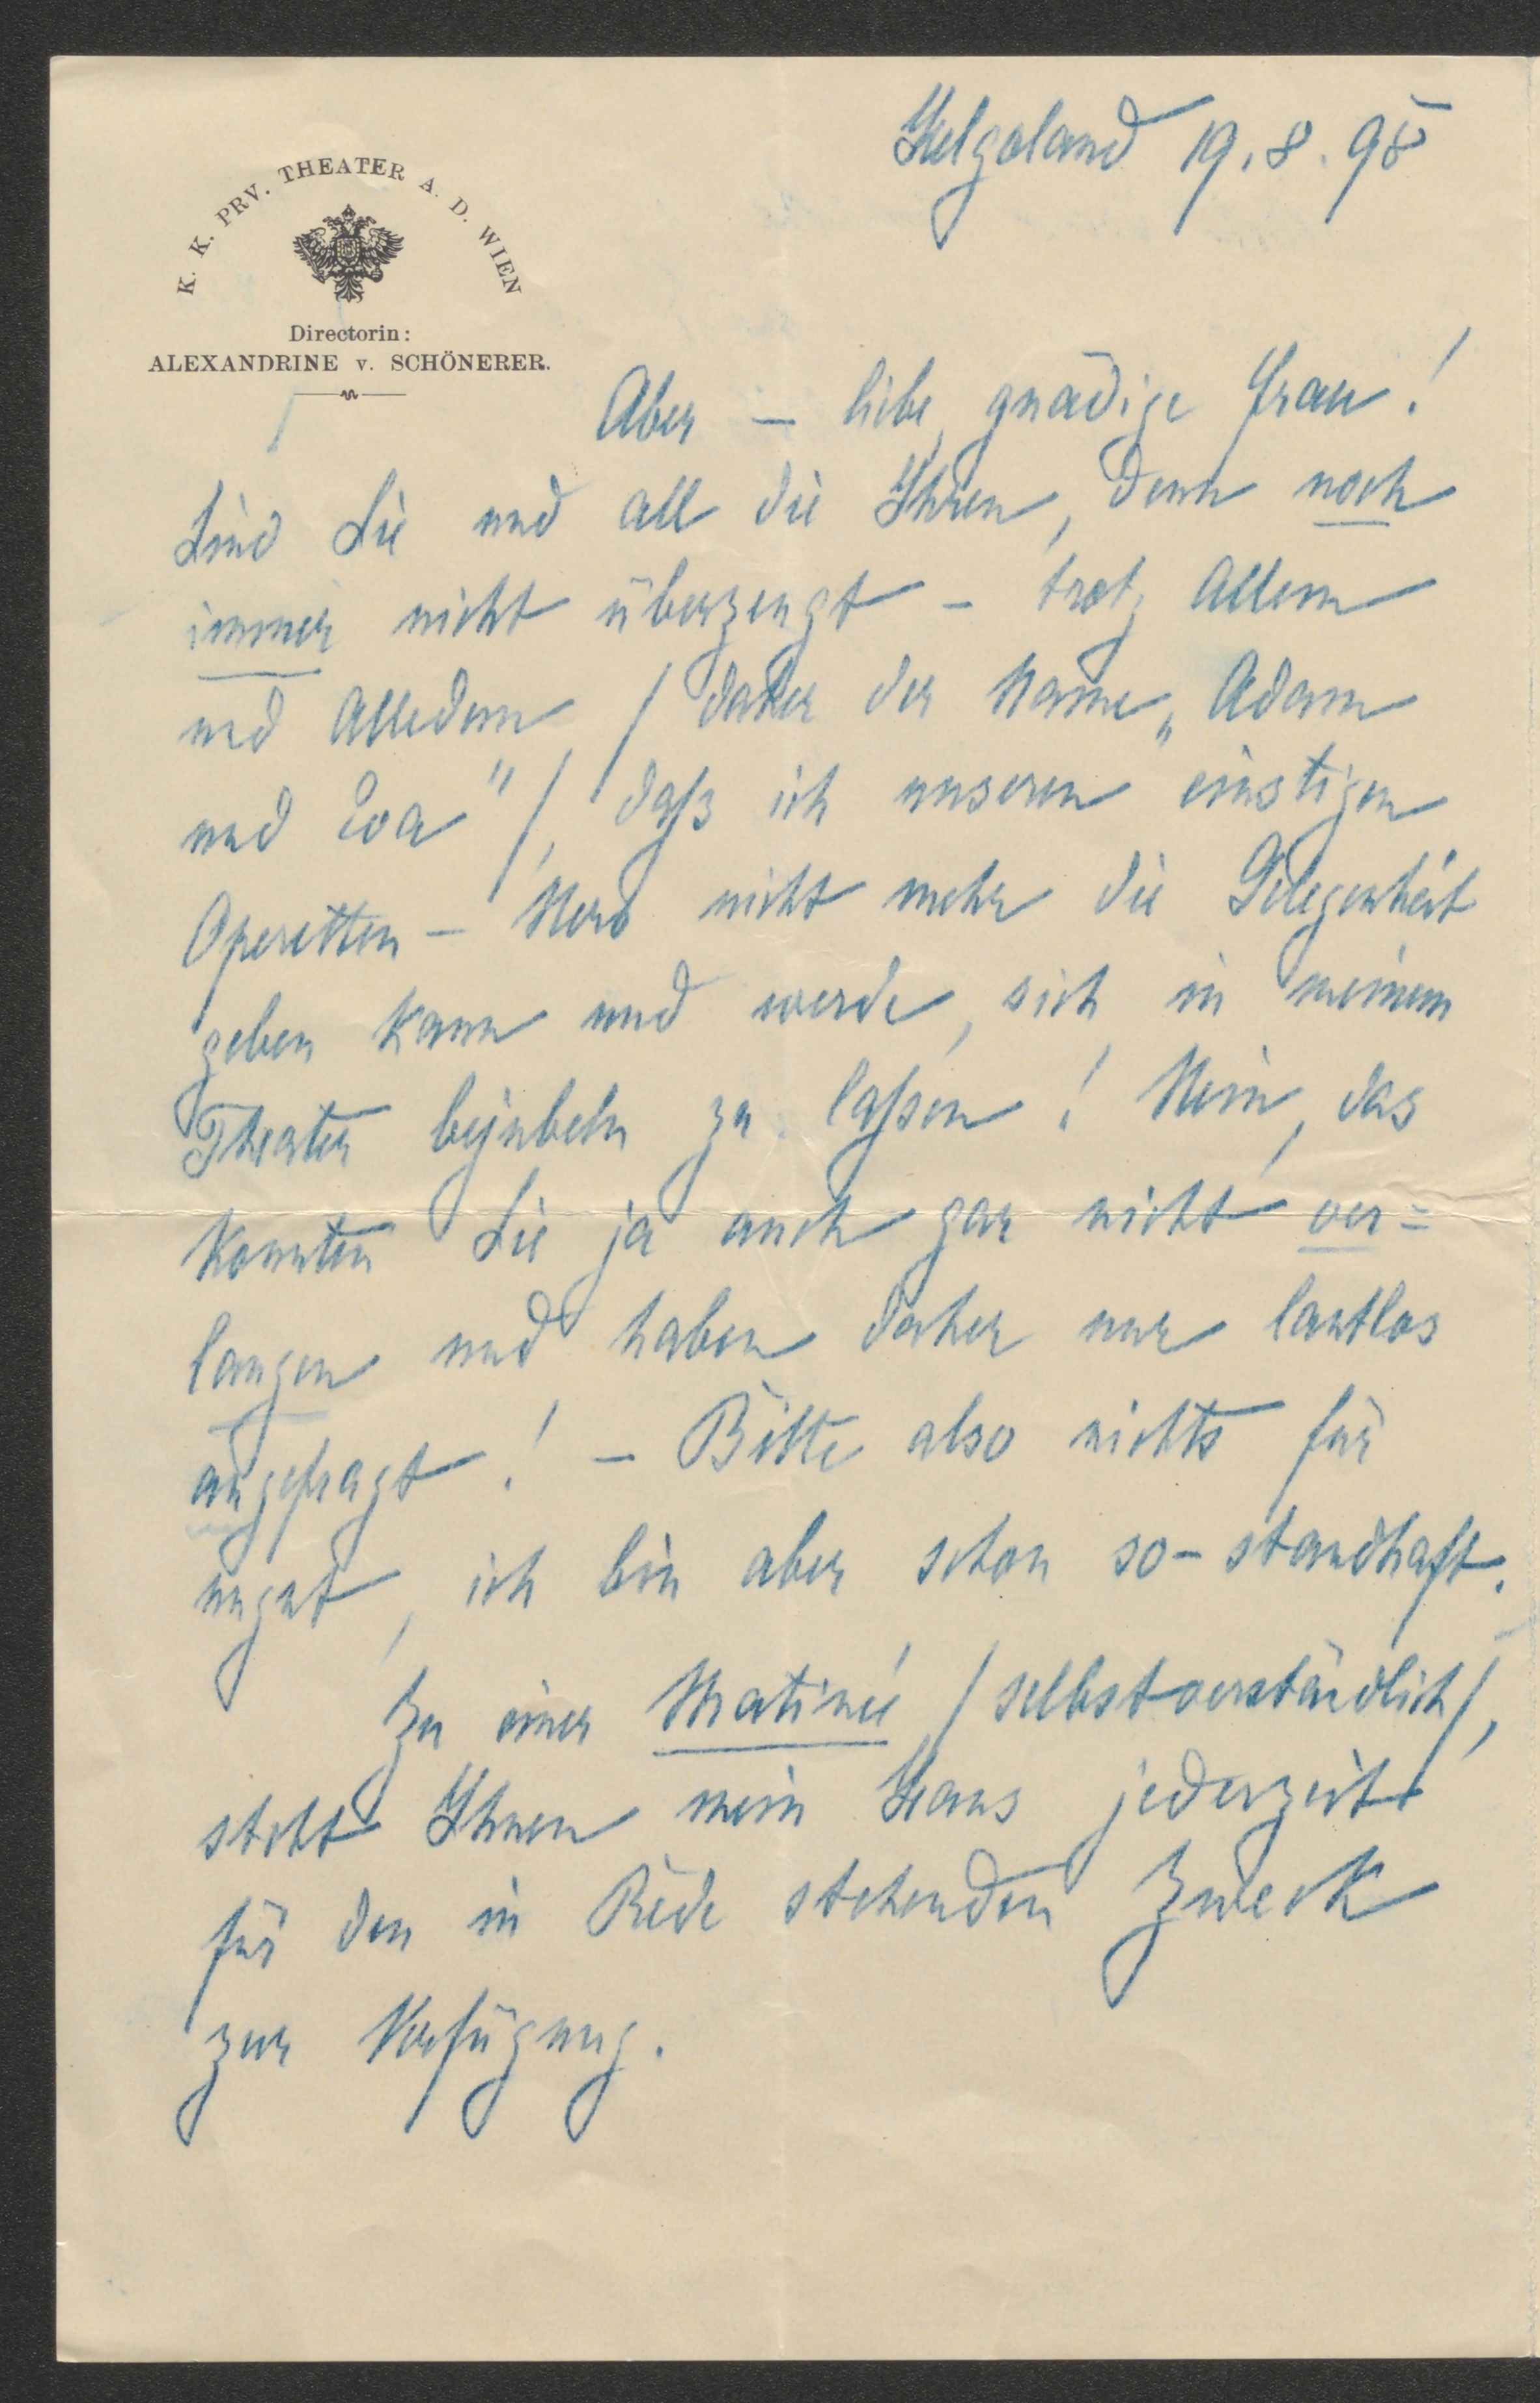 Helgoland 19.8.95
K. K. PRV. THEATER A. D. WIEN
Directorin:
ALEXANDRINE v. SCHÖNERER.
Aber – liebe, gnädige Frau!
Sind Sie und all die Ihren, denn noch
immer nicht überzeugt – trotz Allem
und Alledem / daher der Name „Adam
und Eva" /, daß ich unseren einstigen
Operetten – Nero nicht mehr die Gelegenheit
geben kann und werde, sich in meinem
Theater bejubeln zu laßen! Nein, das
konnten Sie ja auch gar nicht ver=
langen und haben daher nur lautlos
angefragt! – Bitte also nichts für
ungut, ich bin aber schon so – standhaft.
Zu einer Matineé / selbstverständlich /,
steht Ihnen mein Haus jederzeit
für den in Rede stehenden Zweck
zur Verfügung.